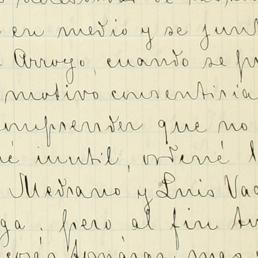 en medio y se junt
Arroyo, cuando se
motivo consentiria
omprender que no
inutil, ordené
Medrano y Luis Vac
ga; pero al fin